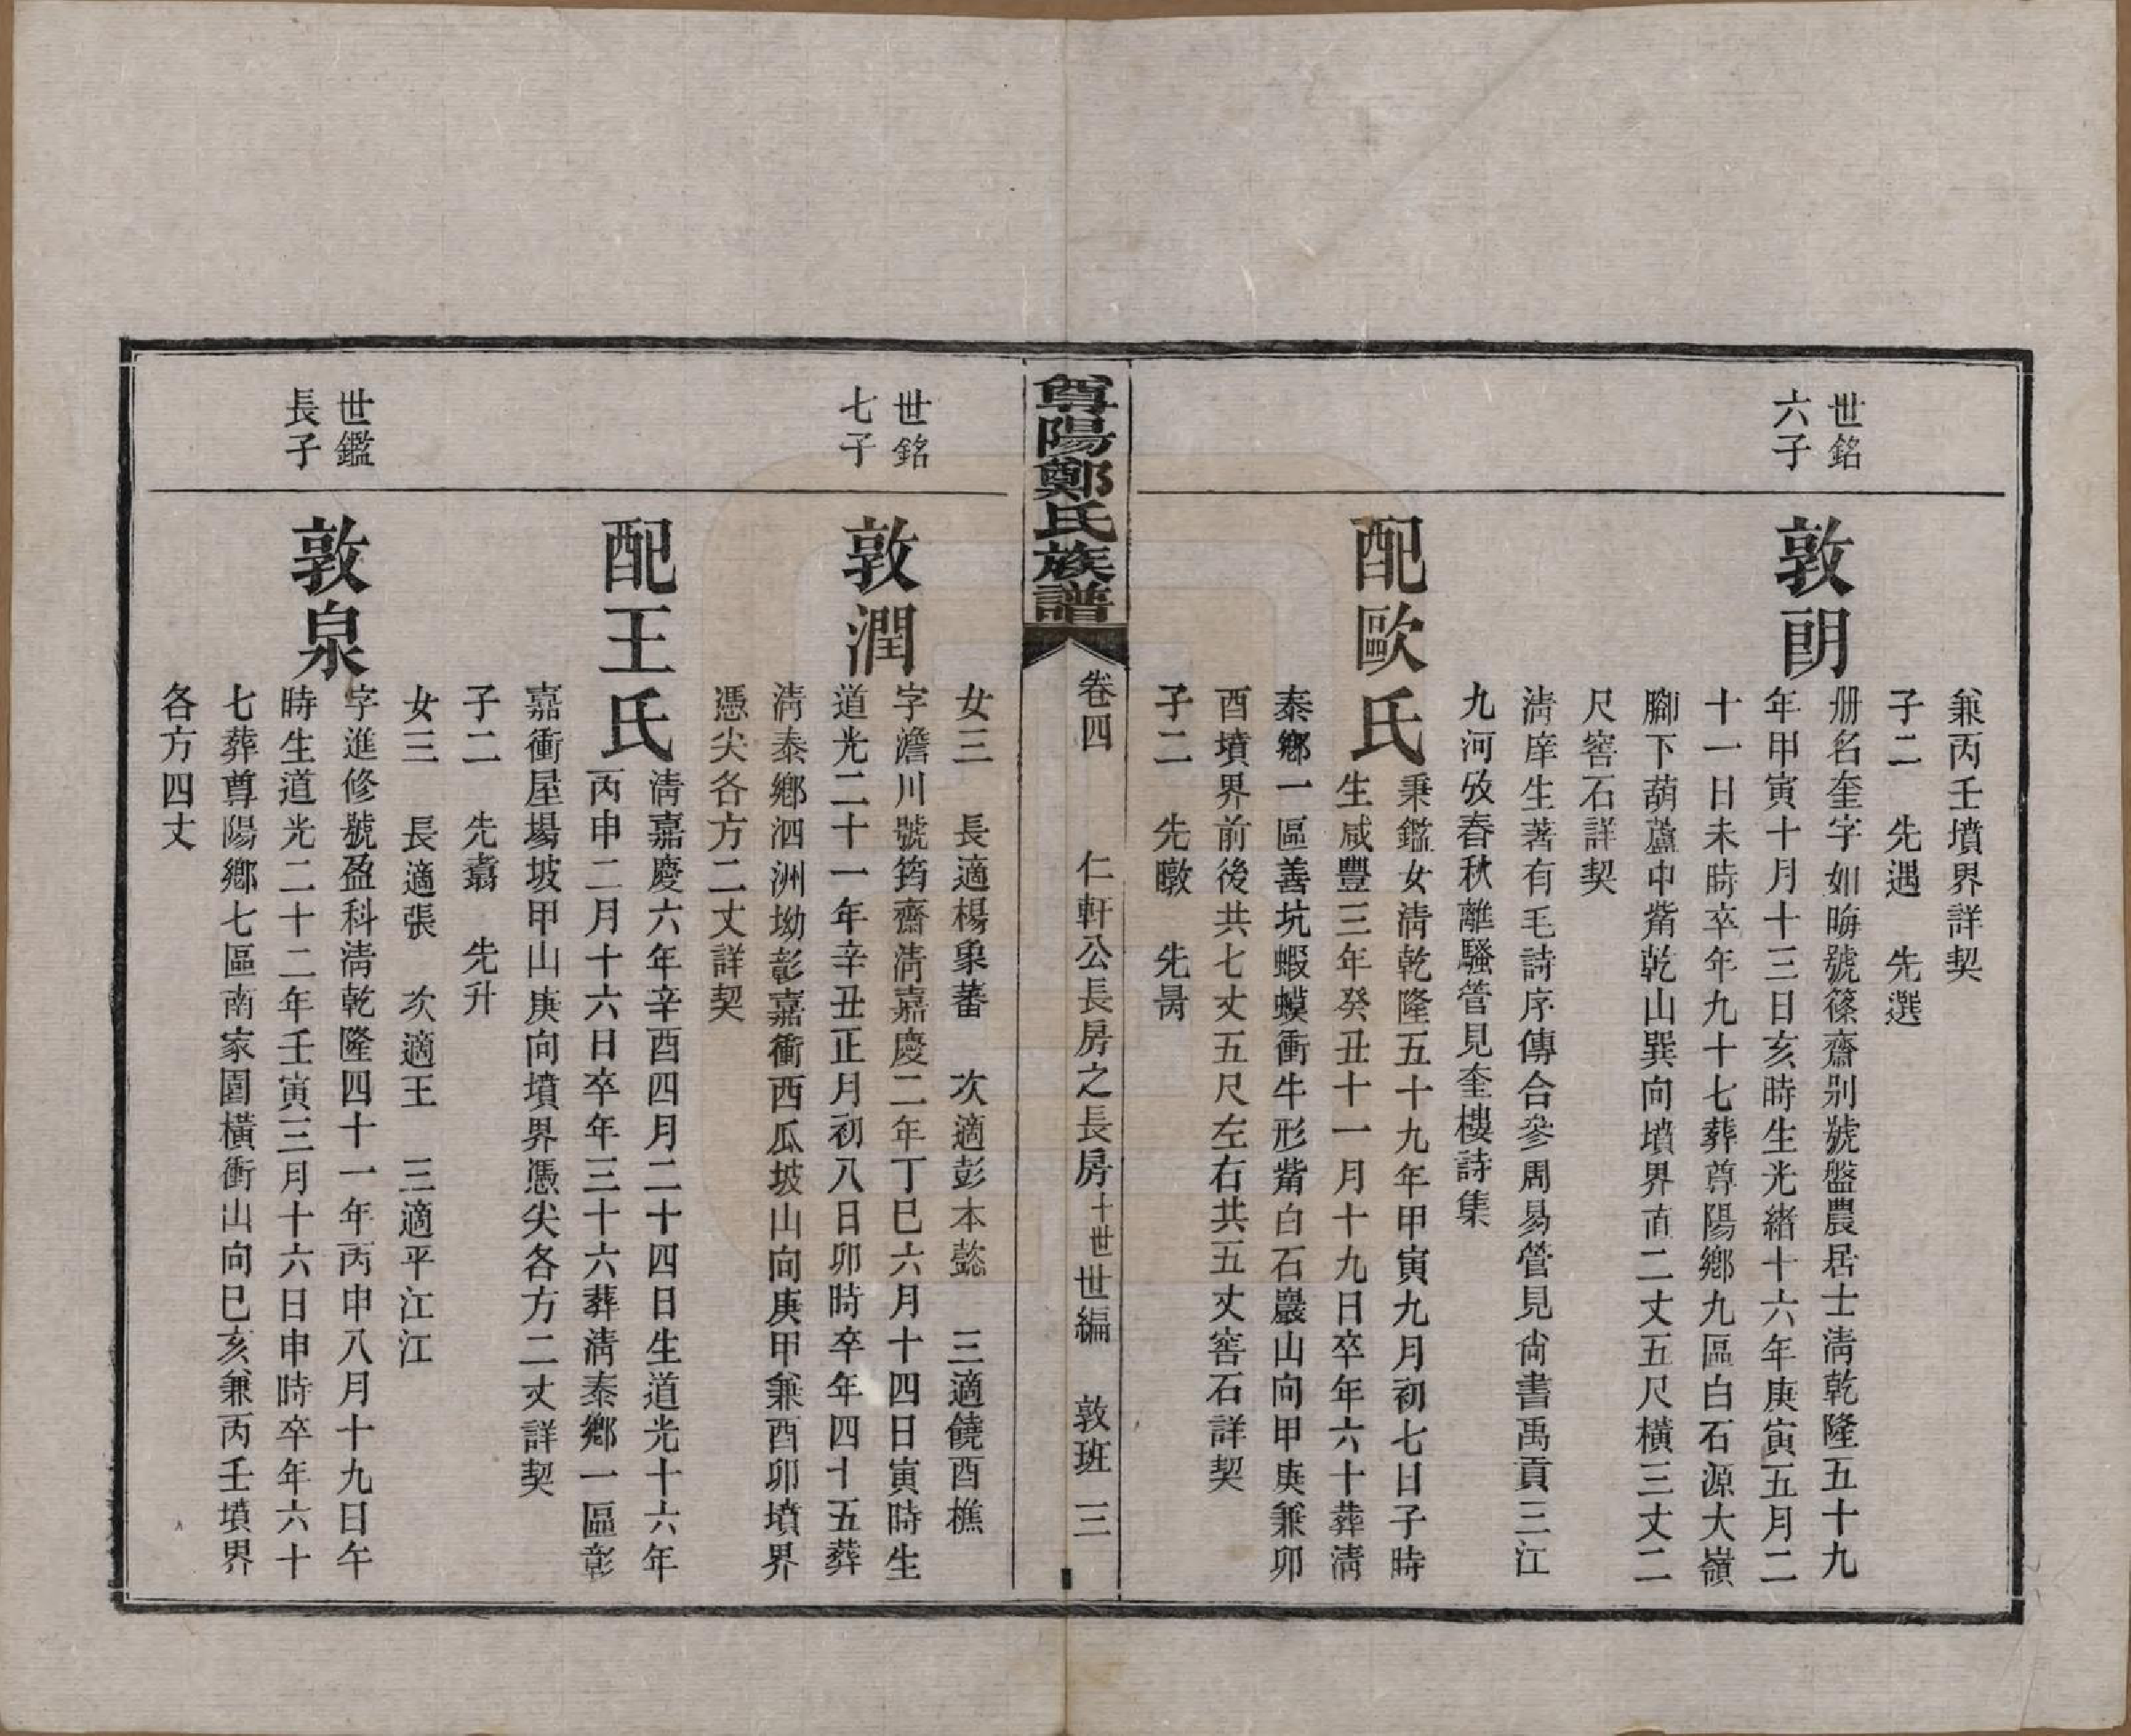 兼丙壬墳界詳契
子二　先遇　先選
世銘
六子
敦朗
册名奎字如晦號篠齋别號盤農居士淸乾隆五十九
年甲寅十月十三日亥時生光緒十六年庚寅五月二
十一日未時卒年九十七葬尊陽鄉九區白石源大嶺
腳下葫蘆中觜乾山巽向墳界直二丈五尺橫三丈二
尺窖石詳契
淸庠生著有毛詩序傳合參周易管見尙書禹貢三江
九河攷春秋離騷管見奎樓詩集
配歐氏
秉鑑女淸乾隆五十九年甲寅九月初七日子時
生咸豐三年癸丑十一月十九日卒年六十葬淸
泰鄉一區善坑蝦蟆衝牛形觜白石巖山向甲庚兼卯
酉墳界前後共七丈五尺左右共五丈窖石詳契
子二　先暾　先暠
尊陽鄭氏族譜
卷四　仁軒公長房之長房十世世編　敦班　三
女三　長適楊象蕃　次適彭本懿　三適饒酉樵
世銘
七子
敦潤
字澹川號筠齋淸嘉慶二年丁巳六月十四日寅時生
道光二十一年辛丑正月初八日卯時卒年四十五葬
淸泰鄉泗洲坳彰嘉衝西瓜坡山向庚甲兼酉卯墳界
憑尖各方二丈詳契
配王氏
淸嘉慶六年辛酉四月二十四日生道光十六年
丙申二月十六日卒年三十六葬淸泰鄉一區彰
嘉衝屋場坡甲山庚向墳界憑尖各方二丈詳契
子二　先翥　先升
女三　長適張　次適王　三適平江江
世鑑
長子
敦泉
字進修號盈科淸乾隆四十一年丙申八月十九日午
時生道光二十二年壬寅三月十六日申時卒年六十
七葬尊陽鄉七區南家園橫衝山向巳亥兼丙壬墳界
各方四丈